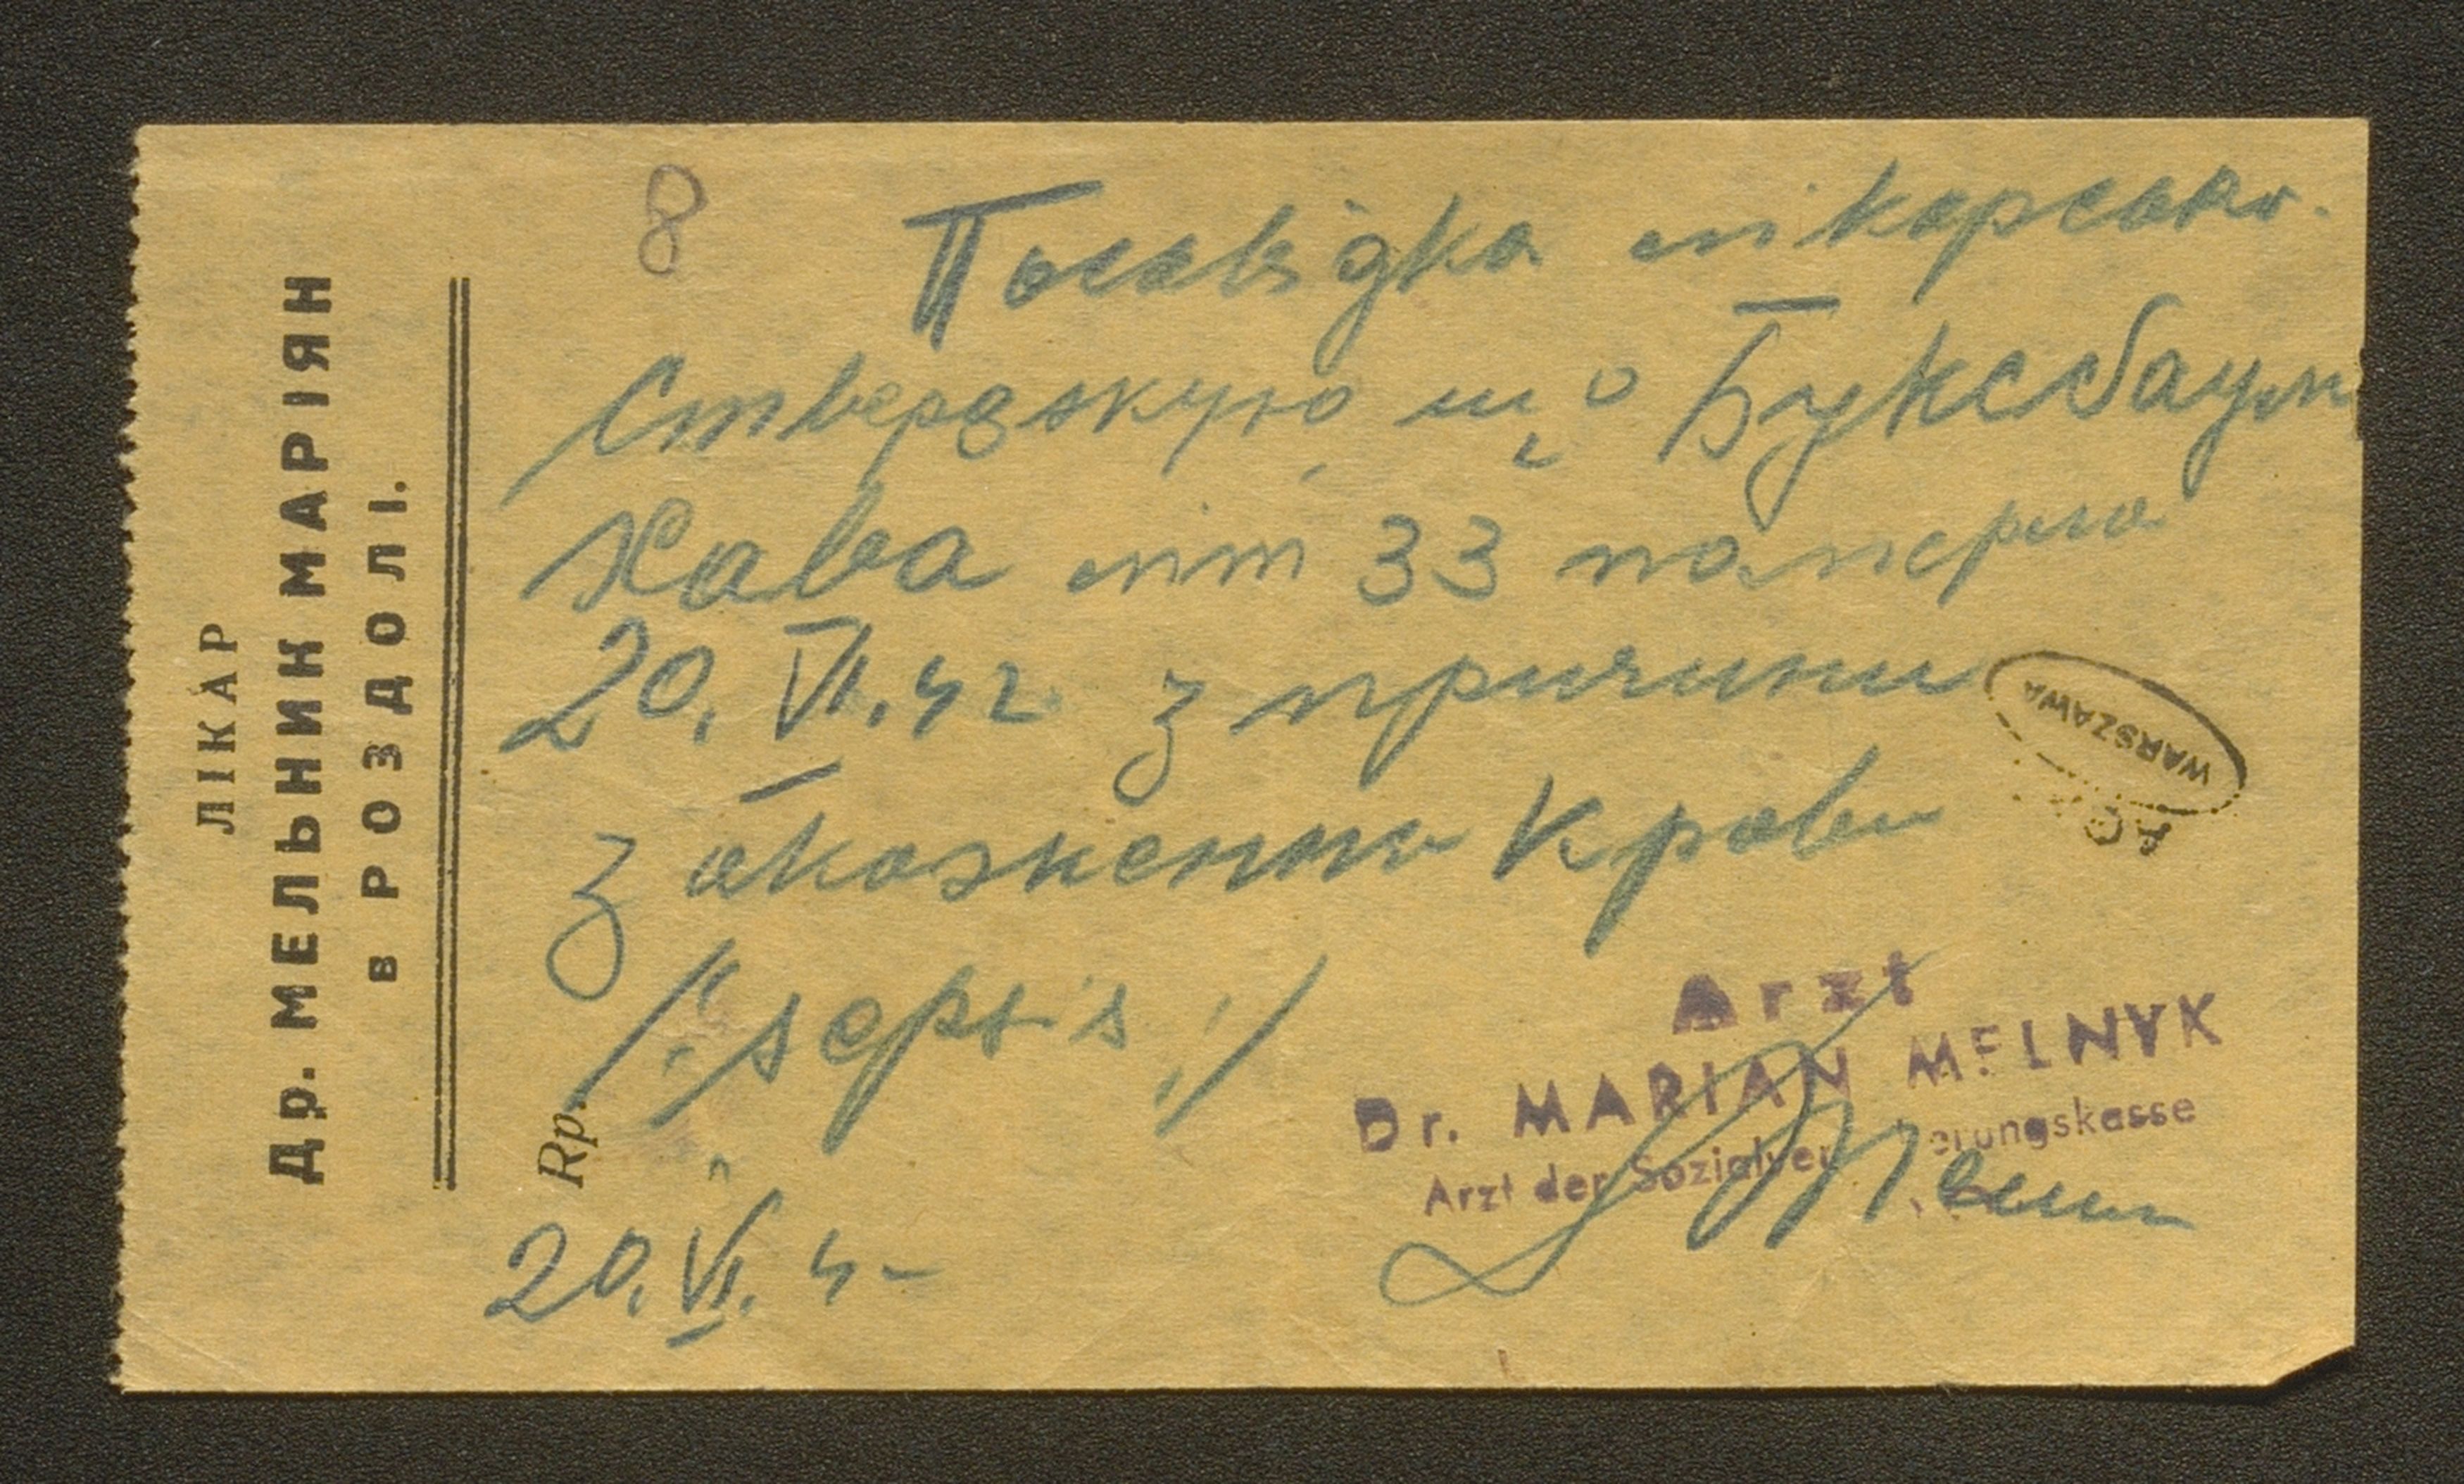 ЛІКАР
Др. МЕЛЬНИК МАРІЯН
в РОЗДОЛІ.
8
Посвідка лікарська.
Стверджую що Буксбаум
Хава літ 33 померла
20. VI. 42 з причини
закаження крови
/: sepsis :/
Rp.
20. VI. 4-
WARSZAWA
Arzt
Dr. MARIAN MELNYK
Arzt der